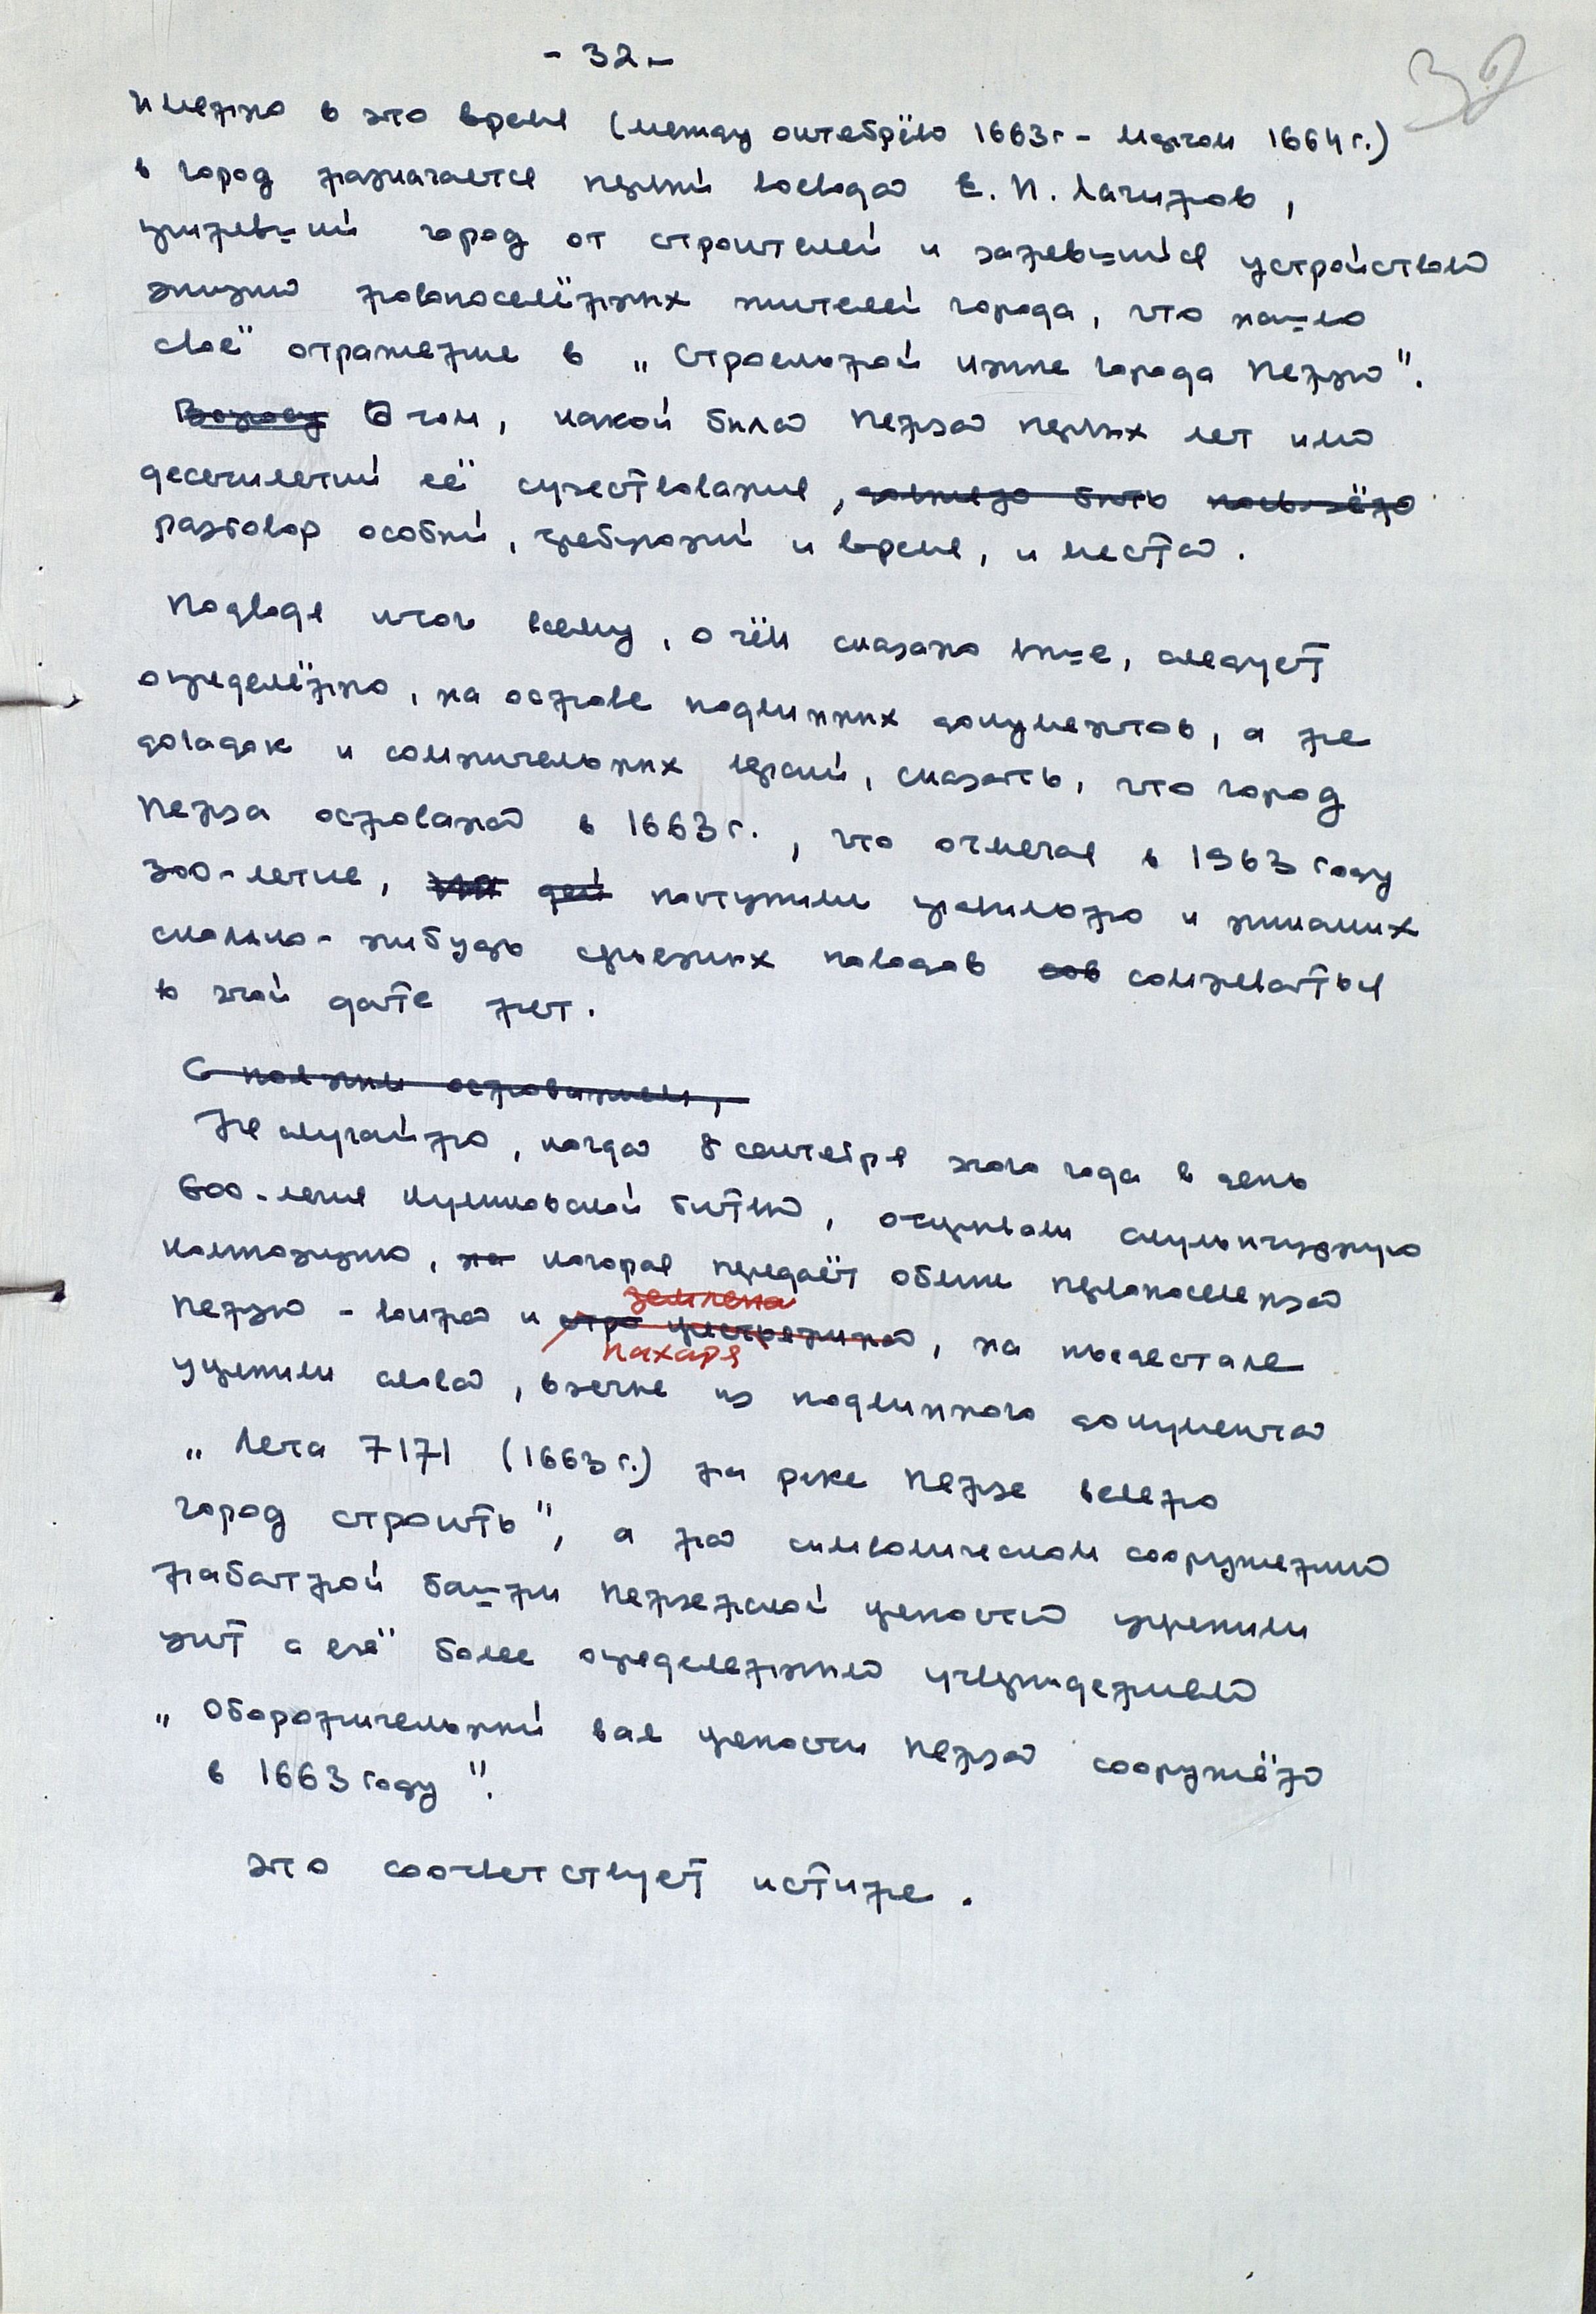 - 32 -
32
Именно в это время (между октябрём 1663 г - мартом 1664 г.)
в город назначается первый воевода Е. П. Лачинов,
принявший город от строителей и занявшийся устройством
жизни новопоселённых жителей города, что нашло
своё отражение в „Строельной книге города Пензы".
О том, какой была Пенза первых лет или
десятилетий её существования, должно быть
разговор особый, требующий и время, и места.
Подводя итог всему, о чём сказано выше, следует
определённо, на основе подлинных документов, а не
догадок и сомнительных версий, сказать, что город
Пенза основана в 1663 г., что отмечая в 1963 году
300-летие, поступили правильно и никаких
сколько-нибудь серьезных поводов сомневаться
в этой дате нет.
С полным основанием,
Не случайно, когда 8 сентября этого года в день
600-летия Куликовской битвы, открывали скульптурную
композицию, на которая передаёт облик первопоселенца
землепа
Пензы - воина и, на пьедестале
пахаря
укрепили слова, взятые из подлинного документа
„Лета 7171 (1663 г.) на реке Пензе велено
город строить", а на символическом сооружении
набатной башни Пензенской крепости укрепили
щит с ещё более определенным утверждением
„Оборонительный вал крепости Пенза сооружён
в 1663 году".
Это соответствует истине.